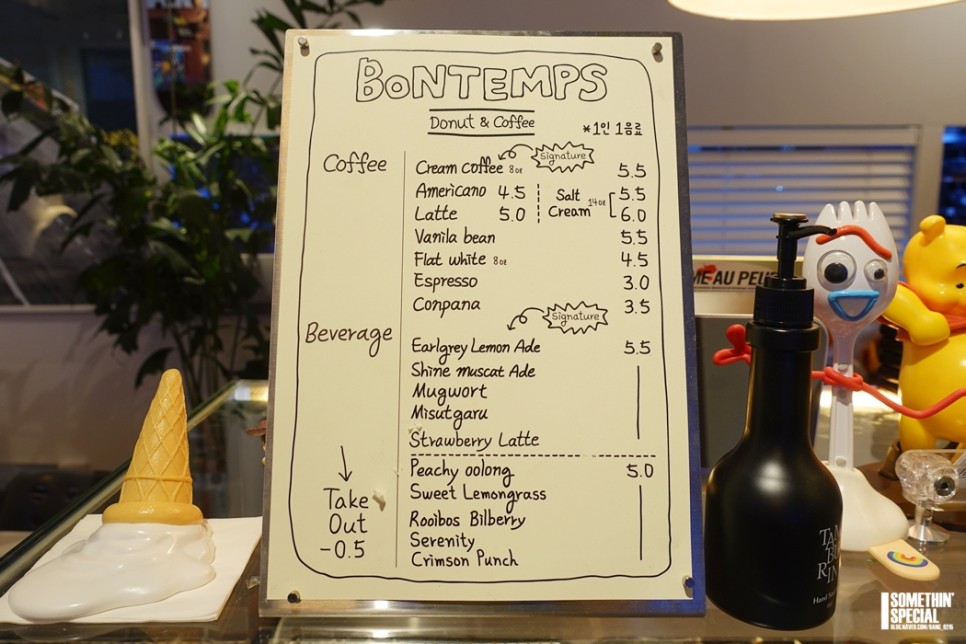 BONTEMPS
Donut & Coffee
*1인 1음료
Coffee
Cream Coffee 8oz Signature 5.5
Americano 4.5 Salt Cream 14oz 5.5
Latte 5.0 6.0
Vanila bean 5.5
Flat white 8oz 4.5
Espresso 3.0
Conpana 3.5
Beverage
Signature
Earlgrey Lemon Ade 5.5
Shine muscat Ade
Mugwort
Misutgaru
Strawberry Latte
Peachy oolong 5.0
Sweet Lemongrass
Rooibos Bilberry
Serenity
Crimson Punch
Take
Out
-0.5
ME AU PEU
SOMETHIN'
SPECIAL
BLOG.NAVER.COM/BANG_0215